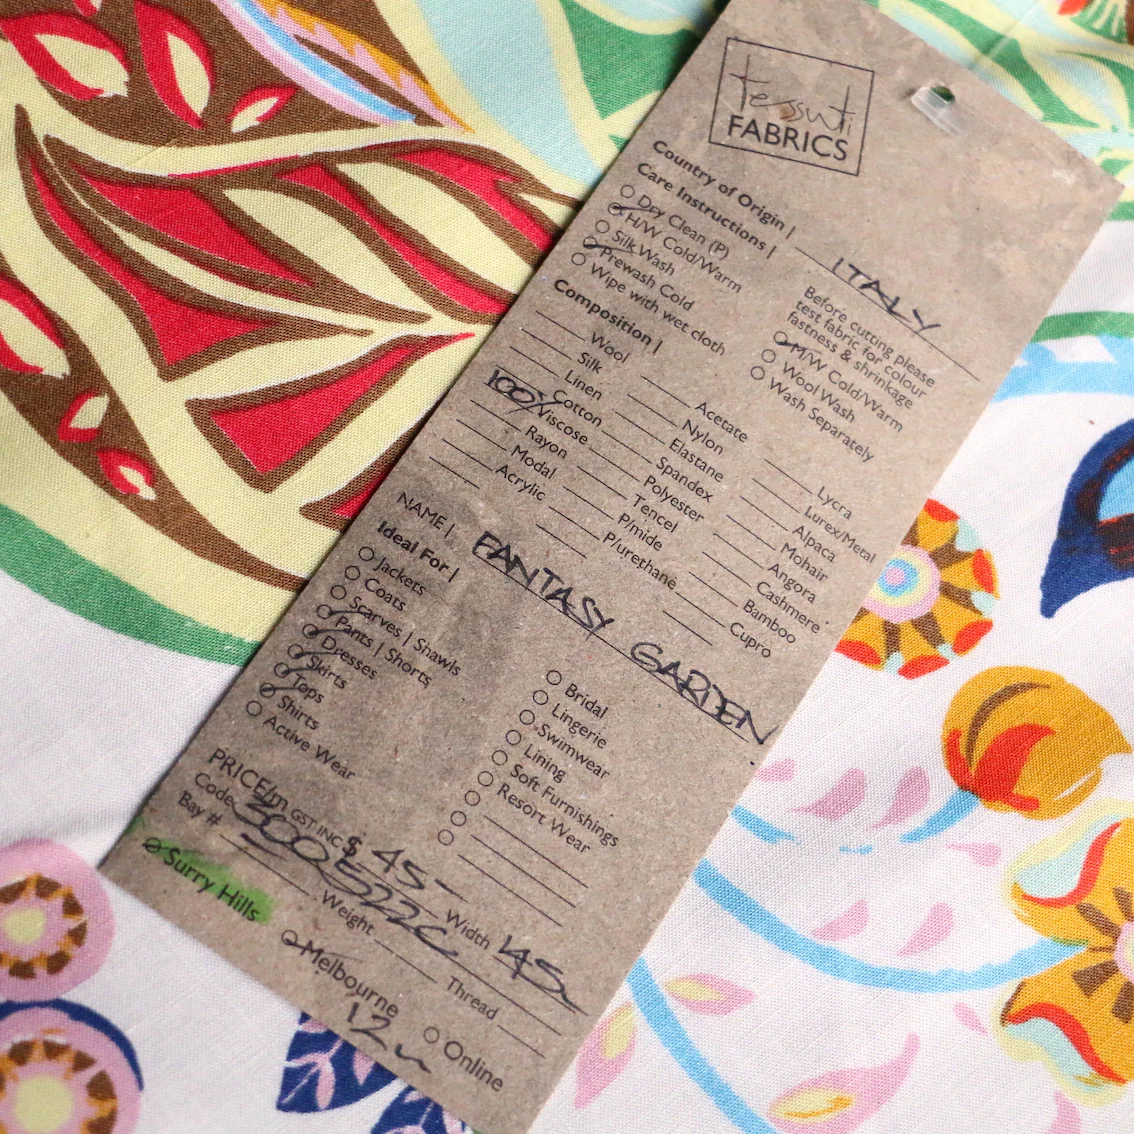 tessuti
FABRICS
Country of Origin | ITALY
Care Instructions |
Dry Clean (P)
H/W Cold/Warm
Silk Wash
Prewash Cold
Wipe with wet cloth
Before cutting please
test fabric for colour
fastness & shrinkage
M/W Cold/Warm
Wool Wash
Wash Separately
Composition |
Wool
Silk
Linen
100% Cotton
Viscose
Rayon
Modal
Acrylic
Acetate
Nylon
Elastane
Spandex
Polyester
Tencel
P/mide
P/urethane
Lycra
Lurex/Metal
Alpaca
Mohair
Angora
Cashmere
Bamboo
Cupro
NAME | FANTASY GARDEN
Ideal For |
Jackets
Coats
Scarves | Shawls
Pants | Shorts
Dresses
Skirts
Tops
Shirts
Active Wear
Bridal
Lingerie
Swimwear
Lining
Soft Furnishings
Resort Wear
PRICE/m GST INC $45-
Code 300522C Width 145
Bay # Weight Thread
Surry Hills Melbourne Online
12